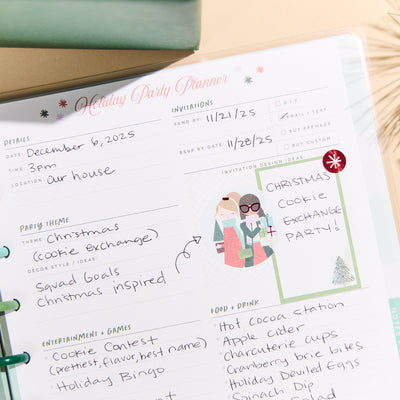 Holiday Party Planner
DETAILS
DATE: December 6, 2025
TIME: 3pm
LOCATION: our house
INVITATIONS
SEND BY: 11/21/25
RSVP BY DATE: 11/28/25
D.I.Y.
EMAIL / TEXT
BUY PREMADE
BUY CUSTOM
INVITATION DESIGN IDEAS:
CHRISTMAS
COOKIE
EXCHANGE
PARTY!
PARTY THEME
THEME: Christmas
(cookie exchange)
DECOR STYLE / IDEAS:
Squad Goals
Christmas inspired
ENTERTAINMENT + GAMES
Cookie Contest
(prettiest, flavor, best name)
Holiday Bingo
FOOD + DRINK
Hot cocoa station
Apple Cider
Charcuterie cups
Cranberry brie bites
Holiday Deviled Eggs
Spinach Dip
Salad
NOTES